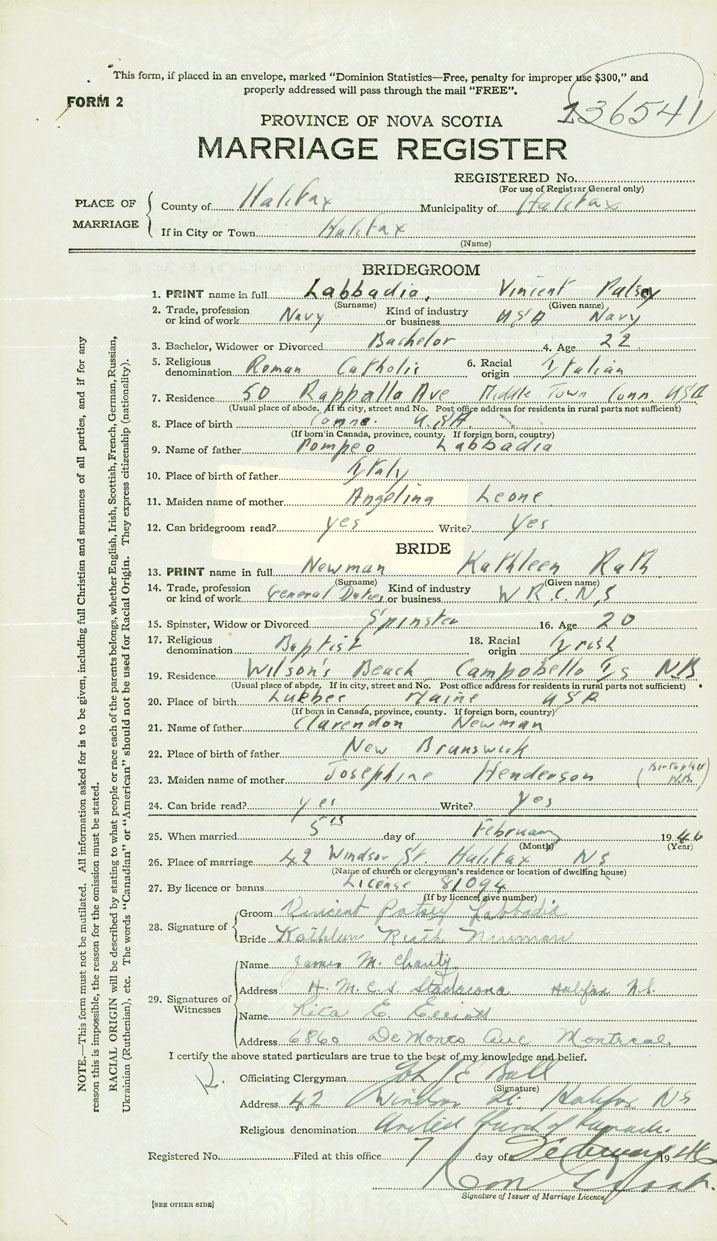 This form, if placed in an envelope, marked "Dominion Statistics—Free, penalty for improper use $300," and
properly addressed will pass through the mail "FREE".
FORM 2
236541
PROVINCE OF NOVA SCOTIA
MARRIAGE REGISTER
REGISTERED No.
(For use of Registrar General only)
PLACE OF MARRIAGE
County of Halifax Municipality of Halifax
If in City or Town Halifax
(Name)
BRIDEGROOM
1. PRINT name in full Labbadia, Vincent Patsey
(Surname) (Given name)
2. Trade, profession or kind of work Navy Kind of industry or business USA Navy
3. Bachelor, Widower or Divorced Bachelor 4. Age 22
5. Religious denomination Roman Catholic 6. Racial origin Italian
7. Residence 50 Rappallo Ave Middle Town Conn. USA
(Usual place of abode. If in city, street and No. Post office address for residents in rural parts not sufficient)
8. Place of birth Conne. U.S.A.
(If born in Canada, province, county. If foreign born, country)
9. Name of father Pompeo Labbadia
10. Place of birth of father Italy
11. Maiden name of mother Angelina Leone
12. Can bridegroom read? yes Write? yes
BRIDE
13. PRINT name in full Newman Kathleen Ruth
(Surname) (Given name)
14. Trade, profession or kind of work General Duties Kind of industry or business W.R.C.N.S
15. Spinster, Widow or Divorced Spinster 16. Age 20
17. Religious denomination Baptist 18. Racial origin Irish
19. Residence Wilson's Beach Campobello Is NB
(Usual place of abode. If in city, street and No. Post office address for residents in rural parts not sufficient)
20. Place of birth Lubec Maine USA
(If born in Canada, province, county. If foreign born, country)
21. Name of father Clarendon Newman
22. Place of birth of father New Brunswick
23. Maiden name of mother Josephine Henderson (Birthplace N.B.)
24. Can bride read? yes Write? yes
25. When married 5th day of February 1946
(Month) (Year)
26. Place of marriage 42 Windsor St. Halifax NS
(Name of church or clergyman's residence or location of dwelling house)
27. By licence or banns License 81094
(If by licence, give number)
28. Signature of
Groom Vincent Patsey Labbadia
Bride Kathleen Ruth Newman
29. Signatures of Witnesses
Name James M. Charity
Address H.M.C.S. Stadacona Halifax N.S.
Name Rita E. Elliott
Address 6860 DeMonts Ave Montreal
I certify the above stated particulars are true to the best of my knowledge and belief.
Officiating Clergyman Ball
(Signature)
Address 42 Windsor St. Halifax NS
Religious denomination United Church of Canada.
Registered No. Filed at this office 7 day of February 1946
Signature of Issuer of Marriage Licence
[SEE OTHER SIDE]
NOTE.—This form must not be mutilated. All information asked for is to be given, including full Christian and surnames of all parties, and if for any
reason this is impossible, the reason for the omission must be stated.
RACIAL ORIGIN will be described by stating to what people or race each of the parents belongs, whether English, Irish, Scottish, French, German, Russian,
Ukrainian (Ruthenian), etc. The words "Canadian" or "American" should not be used for Racial Origin. They express citizenship (nationality).